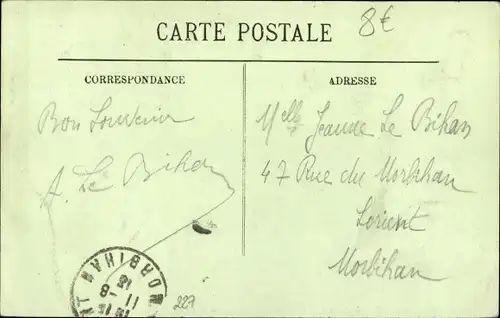 CARTE POSTALE
8€
CORRESPONDANCE
ADRESSE
Bon Souvenir
A. Le Bihan
Melle Jeanne Le Bihan
47 Rue du Morbihan
Lorient
Morbihan
MORBIHAN
227